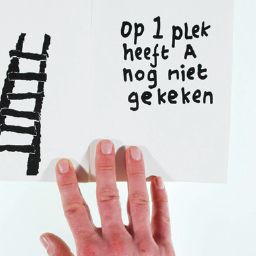 Op 1 plek
heeft A
nog niet
gekeken